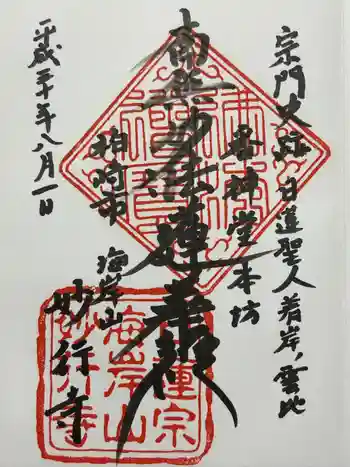 宗門史跡 日蓮聖人着岸ノ霊地
番神堂本坊
南無妙法蓮華経
柏崎市
海岸山
妙行寺
平成三十年八月一日
日蓮宗
海岸山
妙行寺